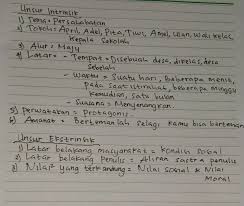 Unsur Intrinsik
1) Tema = Persahabatan
2) Tokoh = April, Adel, Pita, Tiwi, Amel, Wan, Wali kelas,
Kepala Sekolah
3) Alur = Maju
4) Latar = - Tempat = Disebuah desa, dikelas, desa
Sebelah
- Waktu = Suatu hari, beberapa menit,
Pada saat istirahat, beberapa minggu
kemudian, satu bulan
- Suasana = Menyenangkan.
5) Perwatakan = Protagonis
6) Amanat = Bertemanlah selagi kamu bisa berteman
Unsur Ekstrinsik
1) Latar belakang masyarakat = Kondisi Sosial
2) Latar belakang Penulis = Aliran sastra penulis
3) Nilai² yang terkandung = Nilai Sosial & Nilai
Moral